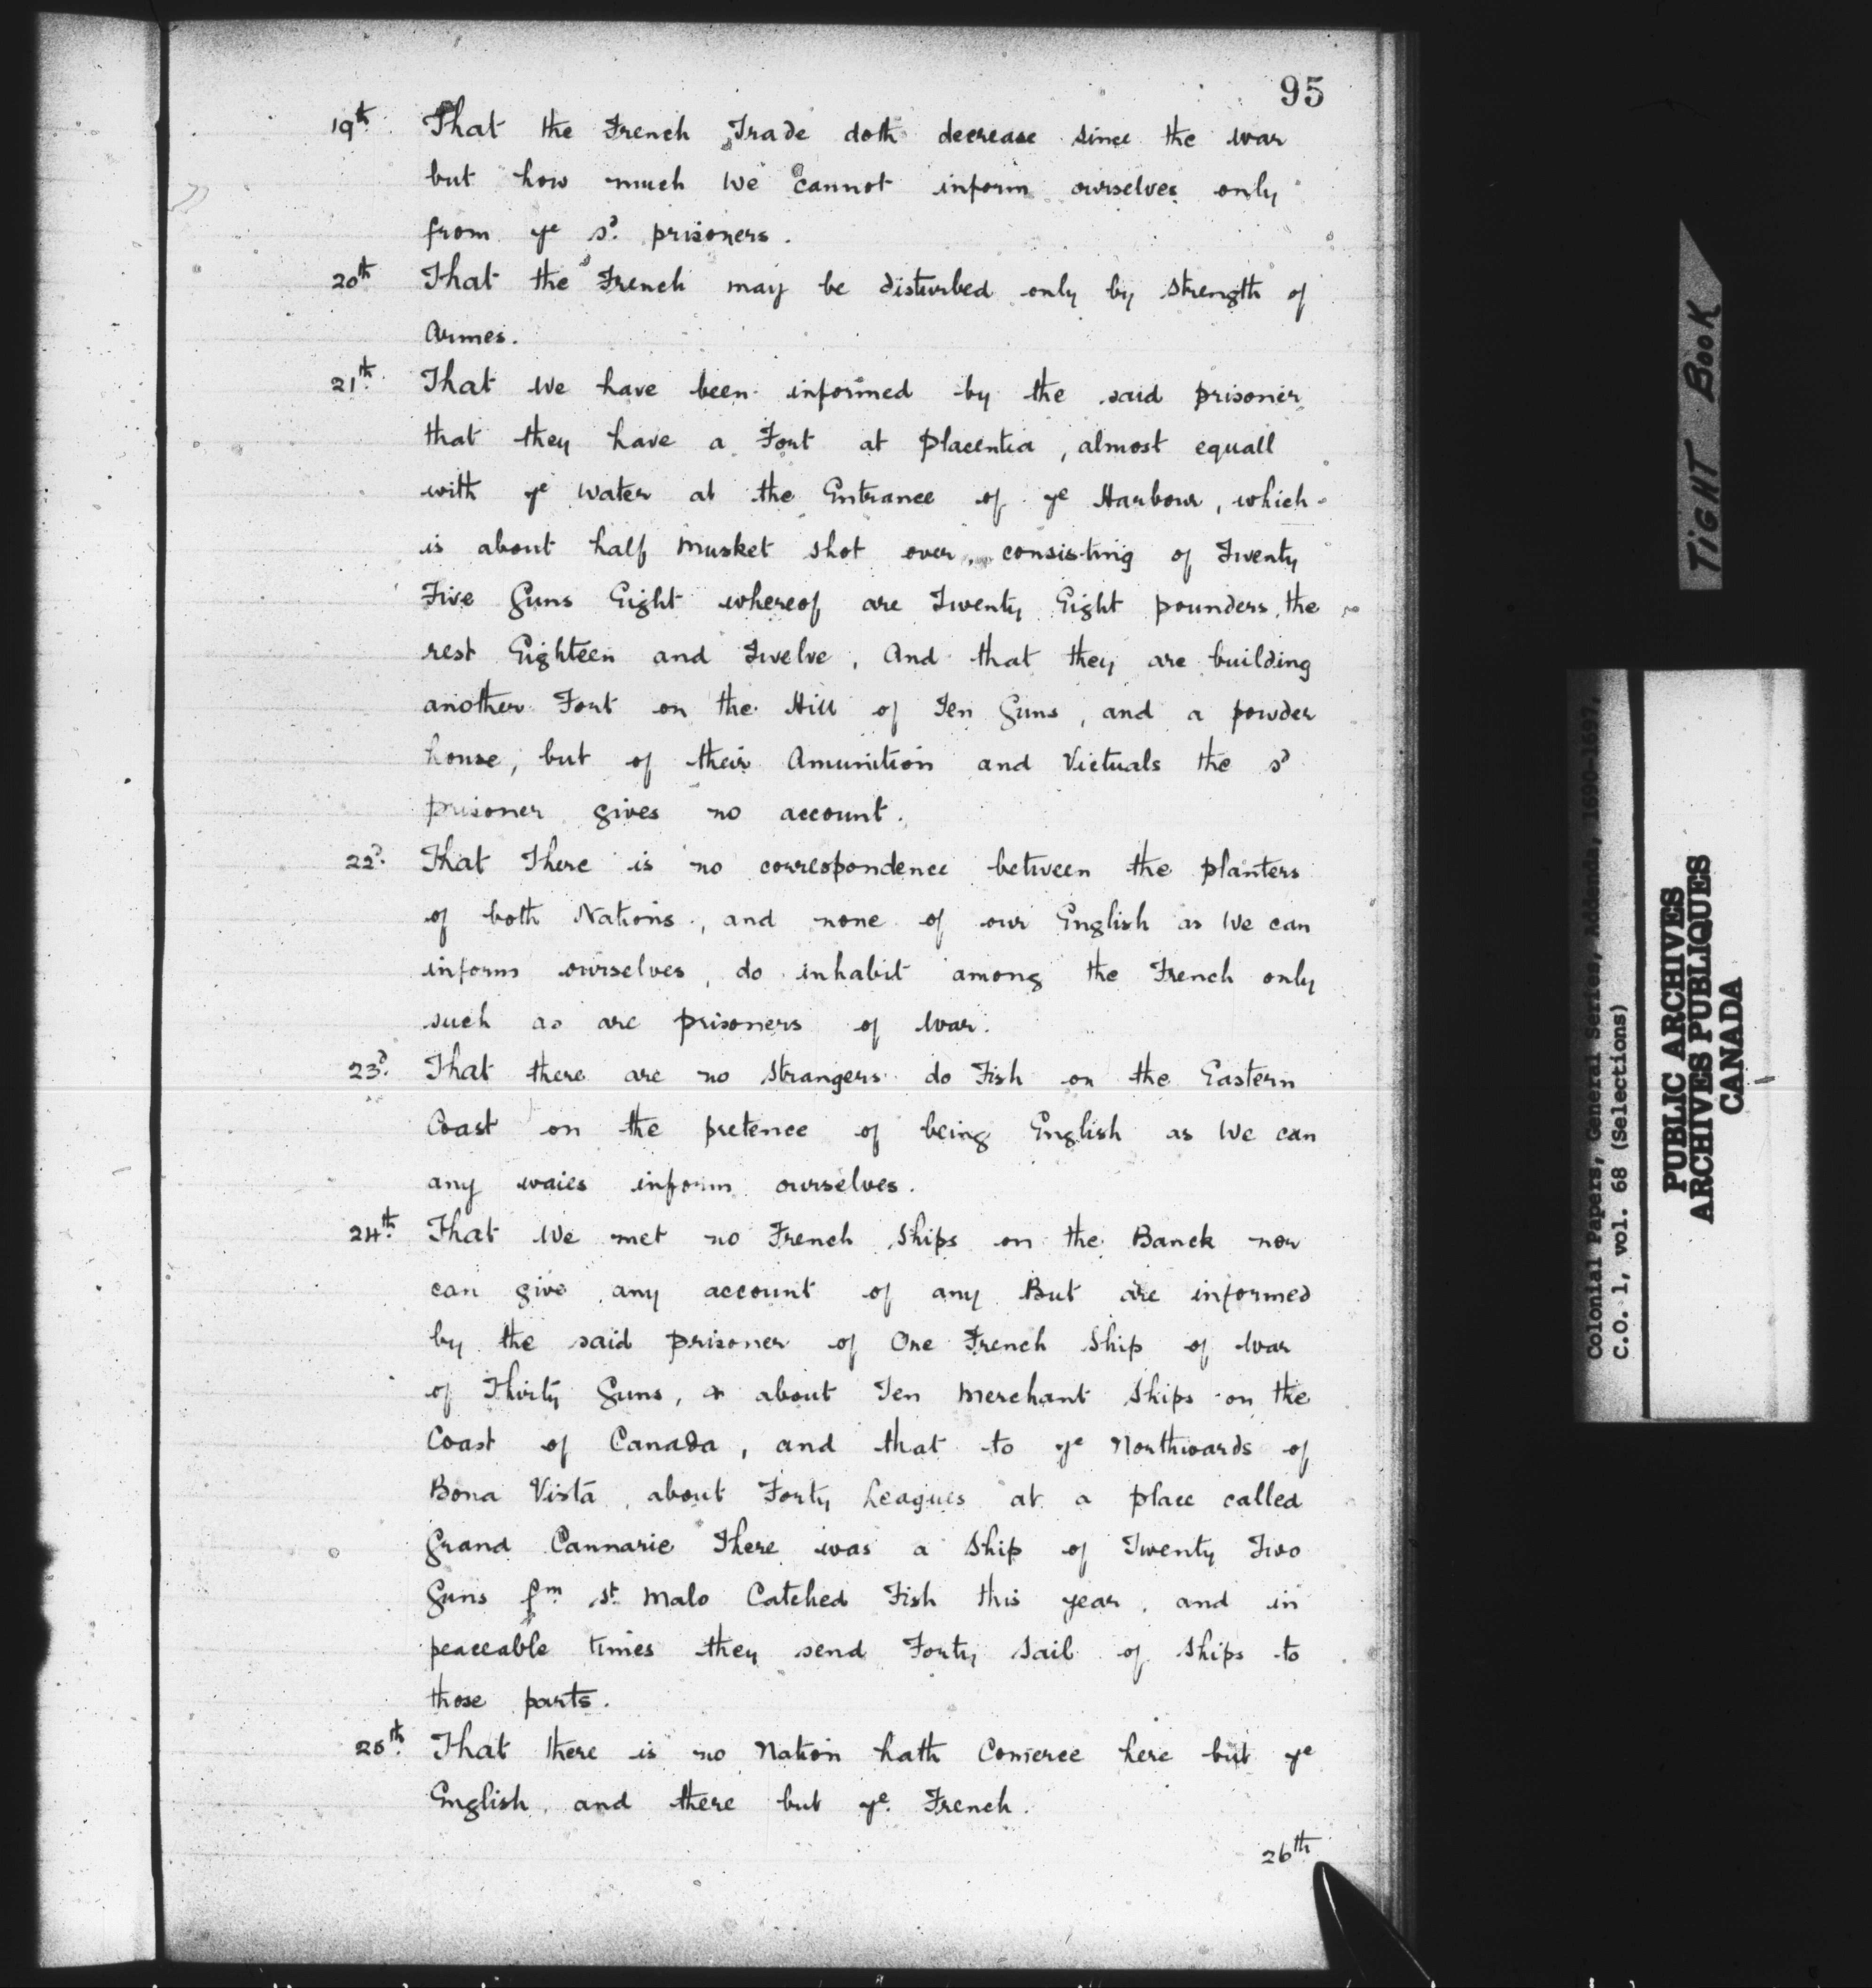 95
19th. That the French Trade doth decrease since the war
but how much We cannot inform ourselves only
from ye sd. prisoners.
20th That the French may be disturbed only by strength of
Armes.
21th. That We have been informed by the said prisoner
that they have a Fort at Placentia, almost equall
with ye Water at the Entrance of ye Harbour, which
is about half Musket shot over, consisting of Twenty
Five Guns Eight whereof are Twenty Eight pounders, the
rest Eighteen and Twelve, And that they are building
another Fort on the Hill of Ten Guns, and a powder
house, but of their Amunition and Victuals the sd
prisoner gives no account.
22d. That There is no correspondence between the planters
of both Nations, and none of our English as We can
inform ourselves, do inhabit among the French only
such as are prisoners of War.
23d. That there are no strangers do Fish on the Eastern
Coast on the pretence of being English as We can
any waies inform ourselves.
24th. That We met no French Ships on the Banck nor
can give any account of any But are informed
by the said prisoner of One French Ship of War
of Thirty Guns, & about Ten Merchant Ships on the
Coast of Canada, and that to ye Northwards of
Bona Vista, about Forty Leagues at a place called
Grand Cannarie There was a Ship of Twenty Two
Guns fm St. Malo Catched Fish this year, and in
peaceable times they send Forty Sail of Ships to
those parts.
25th. That there is no Nation hath Comerce here but ye
English, and there but ye French.
26th
TIGHT BOOK
Colonial Papers, General Series, Addenda, 1690-1697,
C.O. 1, vol. 68 (Selections)
PUBLIC ARCHIVES
ARCHIVES PUBLIQUES
CANADA